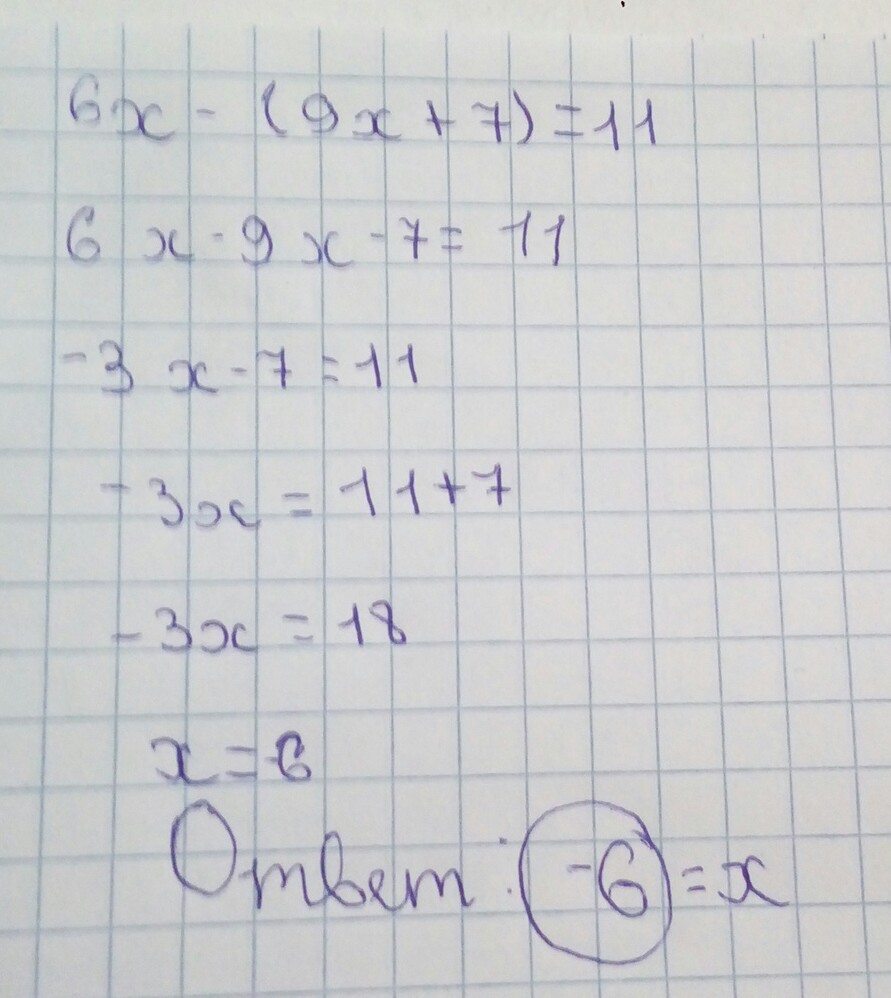 6x - (9x + 7) = 11
6 x - 9 x - 7 = 11
-3 x - 7 = 11
-3x = 11 + 7
-3x = 18
x = -6
Ответ: -6 = x